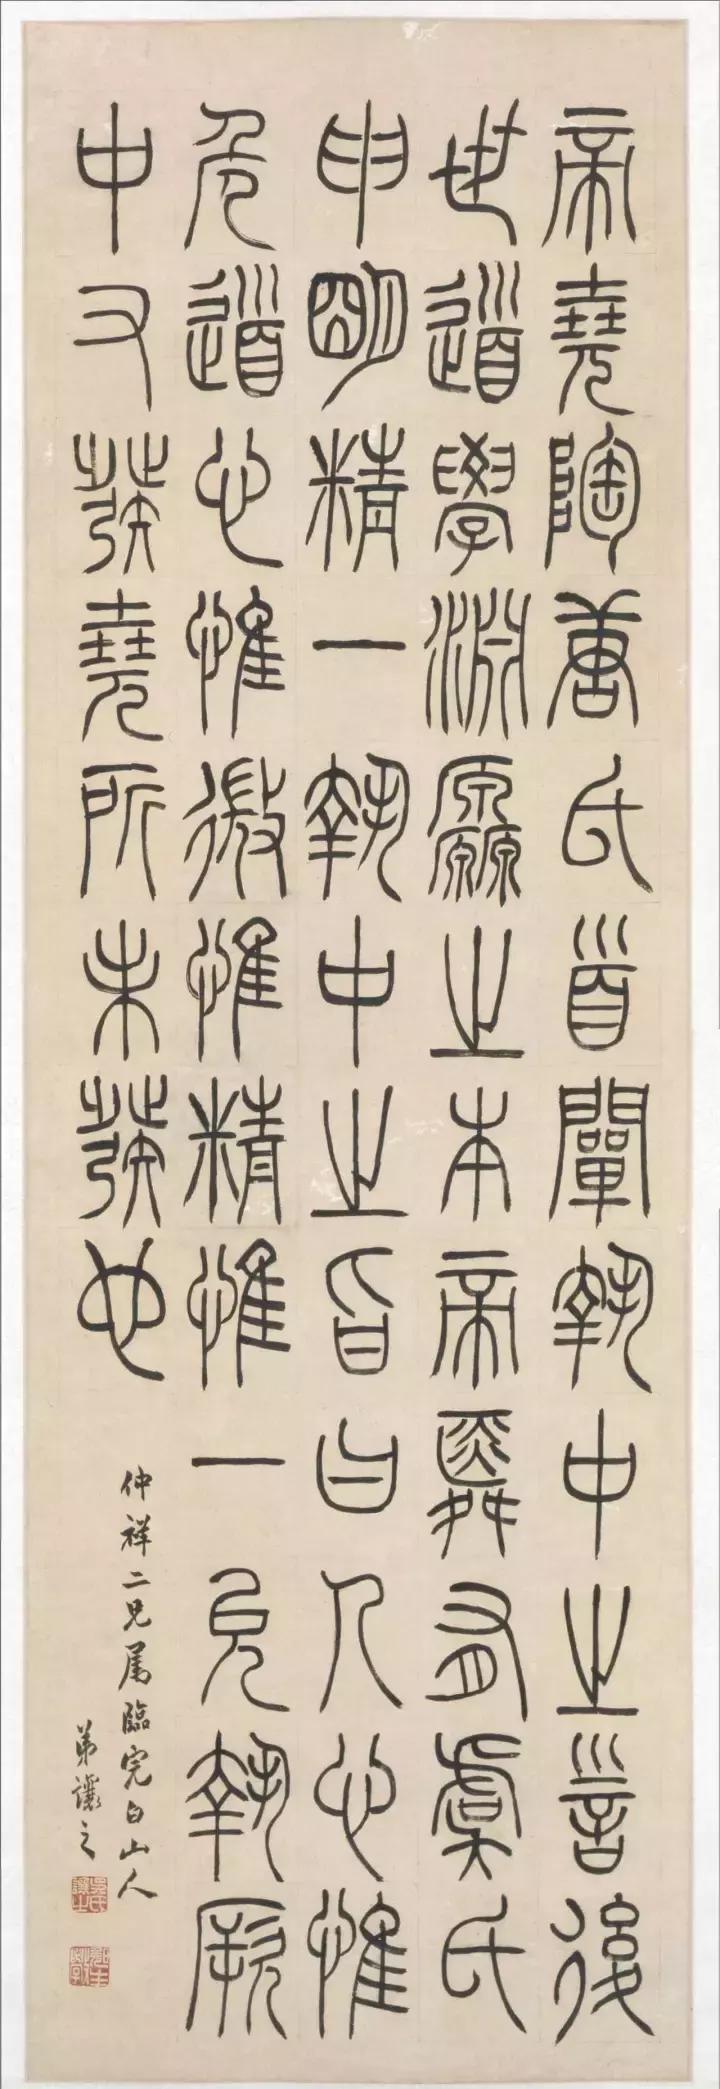 帝堯陶唐氏首闡執中之言後
世道學淵厵之本帝舜有虞氏
申明精一執中之旨曰人心惟
危道心惟微惟精惟一允執厥
中又發堯所未發也
仲祥二兄屬臨完白山人
弟讓之
吳氏讓之